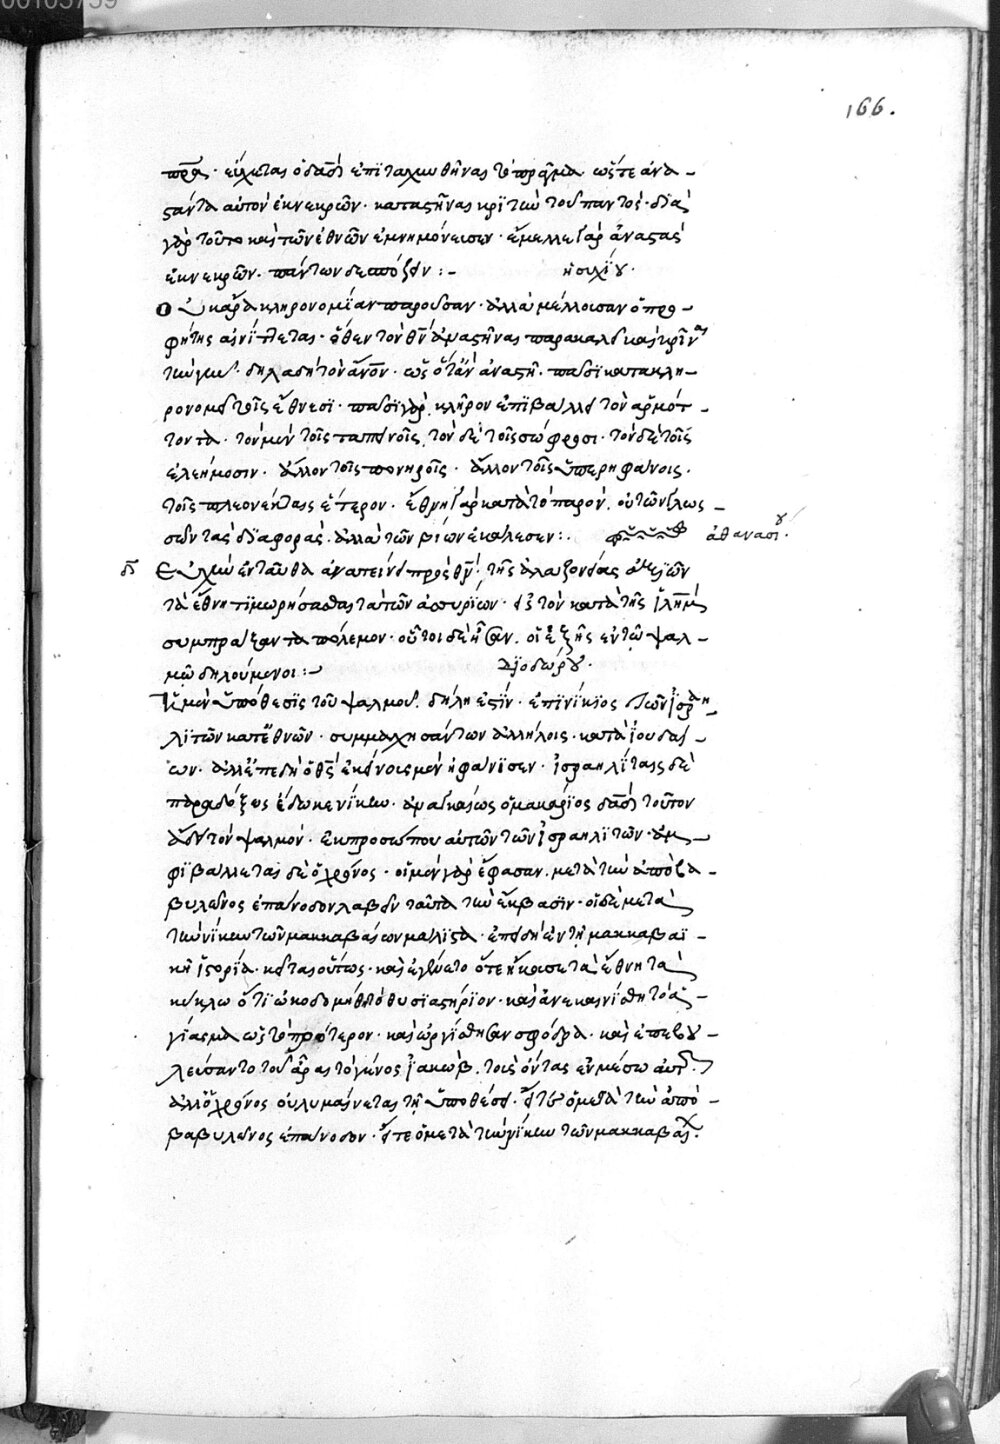 00105759
166.
πρς · εὔχεται ὁ δαδ ἐπιταχυνθῆναι τὸ πρᾶγμα · ὥστε ἀνα-
στάντα αὐτὸν ἐκ νεκρῶν · καταστῆναι κριτὴν τοῦ παντός · διὰ
γὰρ τοῦτο καὶ τῶν ἐθνῶν ἐμνημόνευσεν · ἔμελλε γὰρ ἀναστὰς
ἐκ νεκρῶν · πάντων δεσπόζειν :- ἡσυχίου ·
Οὐκ ἄρα κληρονομίαν παροῦσαν · ἀλλὰ μέλλουσαν ὁ προ-
φήτης αἰνίττεται · ὅθεν τὸν θν ἀναστῆναι παρακαλεῖ καὶ κρῖναι
τὴν γῆν · δηλαδὴ τὸν ἄνον · ὡς ὅταν ἀναστῇ · πᾶσι κατακλη-
ρονομεῖ τοῖς ἔθνεσι · πᾶσι γὰρ κλῆρον ἐπιβάλλει τὸν ἁρμότ-
τοντα · τὸν μὲν τοῖς ταπεινοῖς, τὸν δὲ τοῖς σώφροσι · τὸν δὲ τοῖς
ἐλεήμοσιν · ἄλλον τοῖς πονηροῖς · ἄλλον τοῖς ὑπερηφάνοις ·
τοῖς πλεονέκταις ἕτερον · ἔθνη γὰρ κατὰ τὸ παρὸν, οὐ τῶν γλωσ-
σῶν τὰς διαφορὰς · ἀλλὰ τῶν βίων ἐκάλεσεν :. ἀθανασίου ·
Εὐχὴν ἐνταῦθα ἀναπέμπει πρὸς θν · τῆς ἀλαζονείας
τὰ ἔθνη τιμωρήσασθαι τὰ τῶν ἀσσυρίων · εἰς τὸν κατὰ τῆς ἱλημ
συμπράξαντα πόλεμον · οὗτοι δὲ ἦσαν, οἱ ἑξῆς ἐν τῷ ψαλ-
μῷ δηλούμενοι :- διοδώρου ·
Ἡ μὲν ὑπόθεσις τοῦ ψαλμοῦ, δήλη ἐστίν · ἐπινίκιος τῶν ἰσραη-
λιτῶν κατ' ἐθνῶν · συμμαχησάντων ἀλλήλοις · κατὰ ἰουδαί-
ων · ἀλλ' ἐπειδὴ ὁ θς ἐκείνους μὲν ἠφάνισεν · ἰσραηλίταις δὲ
παραδόξως ἔδωκε νίκην · ἀναγκαίως ὁ μακάριος δαδ τοῦτον
ᾄδει τὸν ψαλμόν · ἐκ προσώπου αὐτῶν τῶν ἰσραηλιτῶν · ἀμ-
φιβάλλεται δὲ ὁ χρόνος · οἱ μὲν γὰρ ἔφασαν, μετὰ τὴν ἀπὸ βα-
βυλῶνος ἐπάνοδον λαβεῖν ταῦτα τὴν ἔκβασιν · οἱ δὲ μετὰ
τὴν νίκην τῶν μακκαβαίων μάλιστα · ἐπειδὴ ἐν τῇ μακκαβαϊ-
κῇ ἱστορίᾳ · κεῖται οὕτως · καὶ ἐγένετο ὅτε ἤκουσε τὰ ἔθνη τὰ
κύκλῳ ὅτι ὠκοδομήθη τὸ θυσιαστήριον · καὶ ἀνεκαινίσθη τὸ ἁ-
γίασμα ὡς τὸ πρότερον · καὶ ὠργίσθησαν σφόδρα · καὶ ἐπεβου-
λεύσαντο τοῦ ἆραι τὸ γένος ἰακώβ, τοὺς ὄντας ἐν μέσῳ αὐτῶν ·
ἀλλ' ὁ χρόνος οὐ λυμαίνεται τῇ ὑποθέσει · εἴτε ὁ μετὰ τὴν ἀπὸ
βαβυλῶνος ἐπάνοδον · εἴτε ὁ μετὰ τὴν νίκην τῶν μακκαβαίων ·